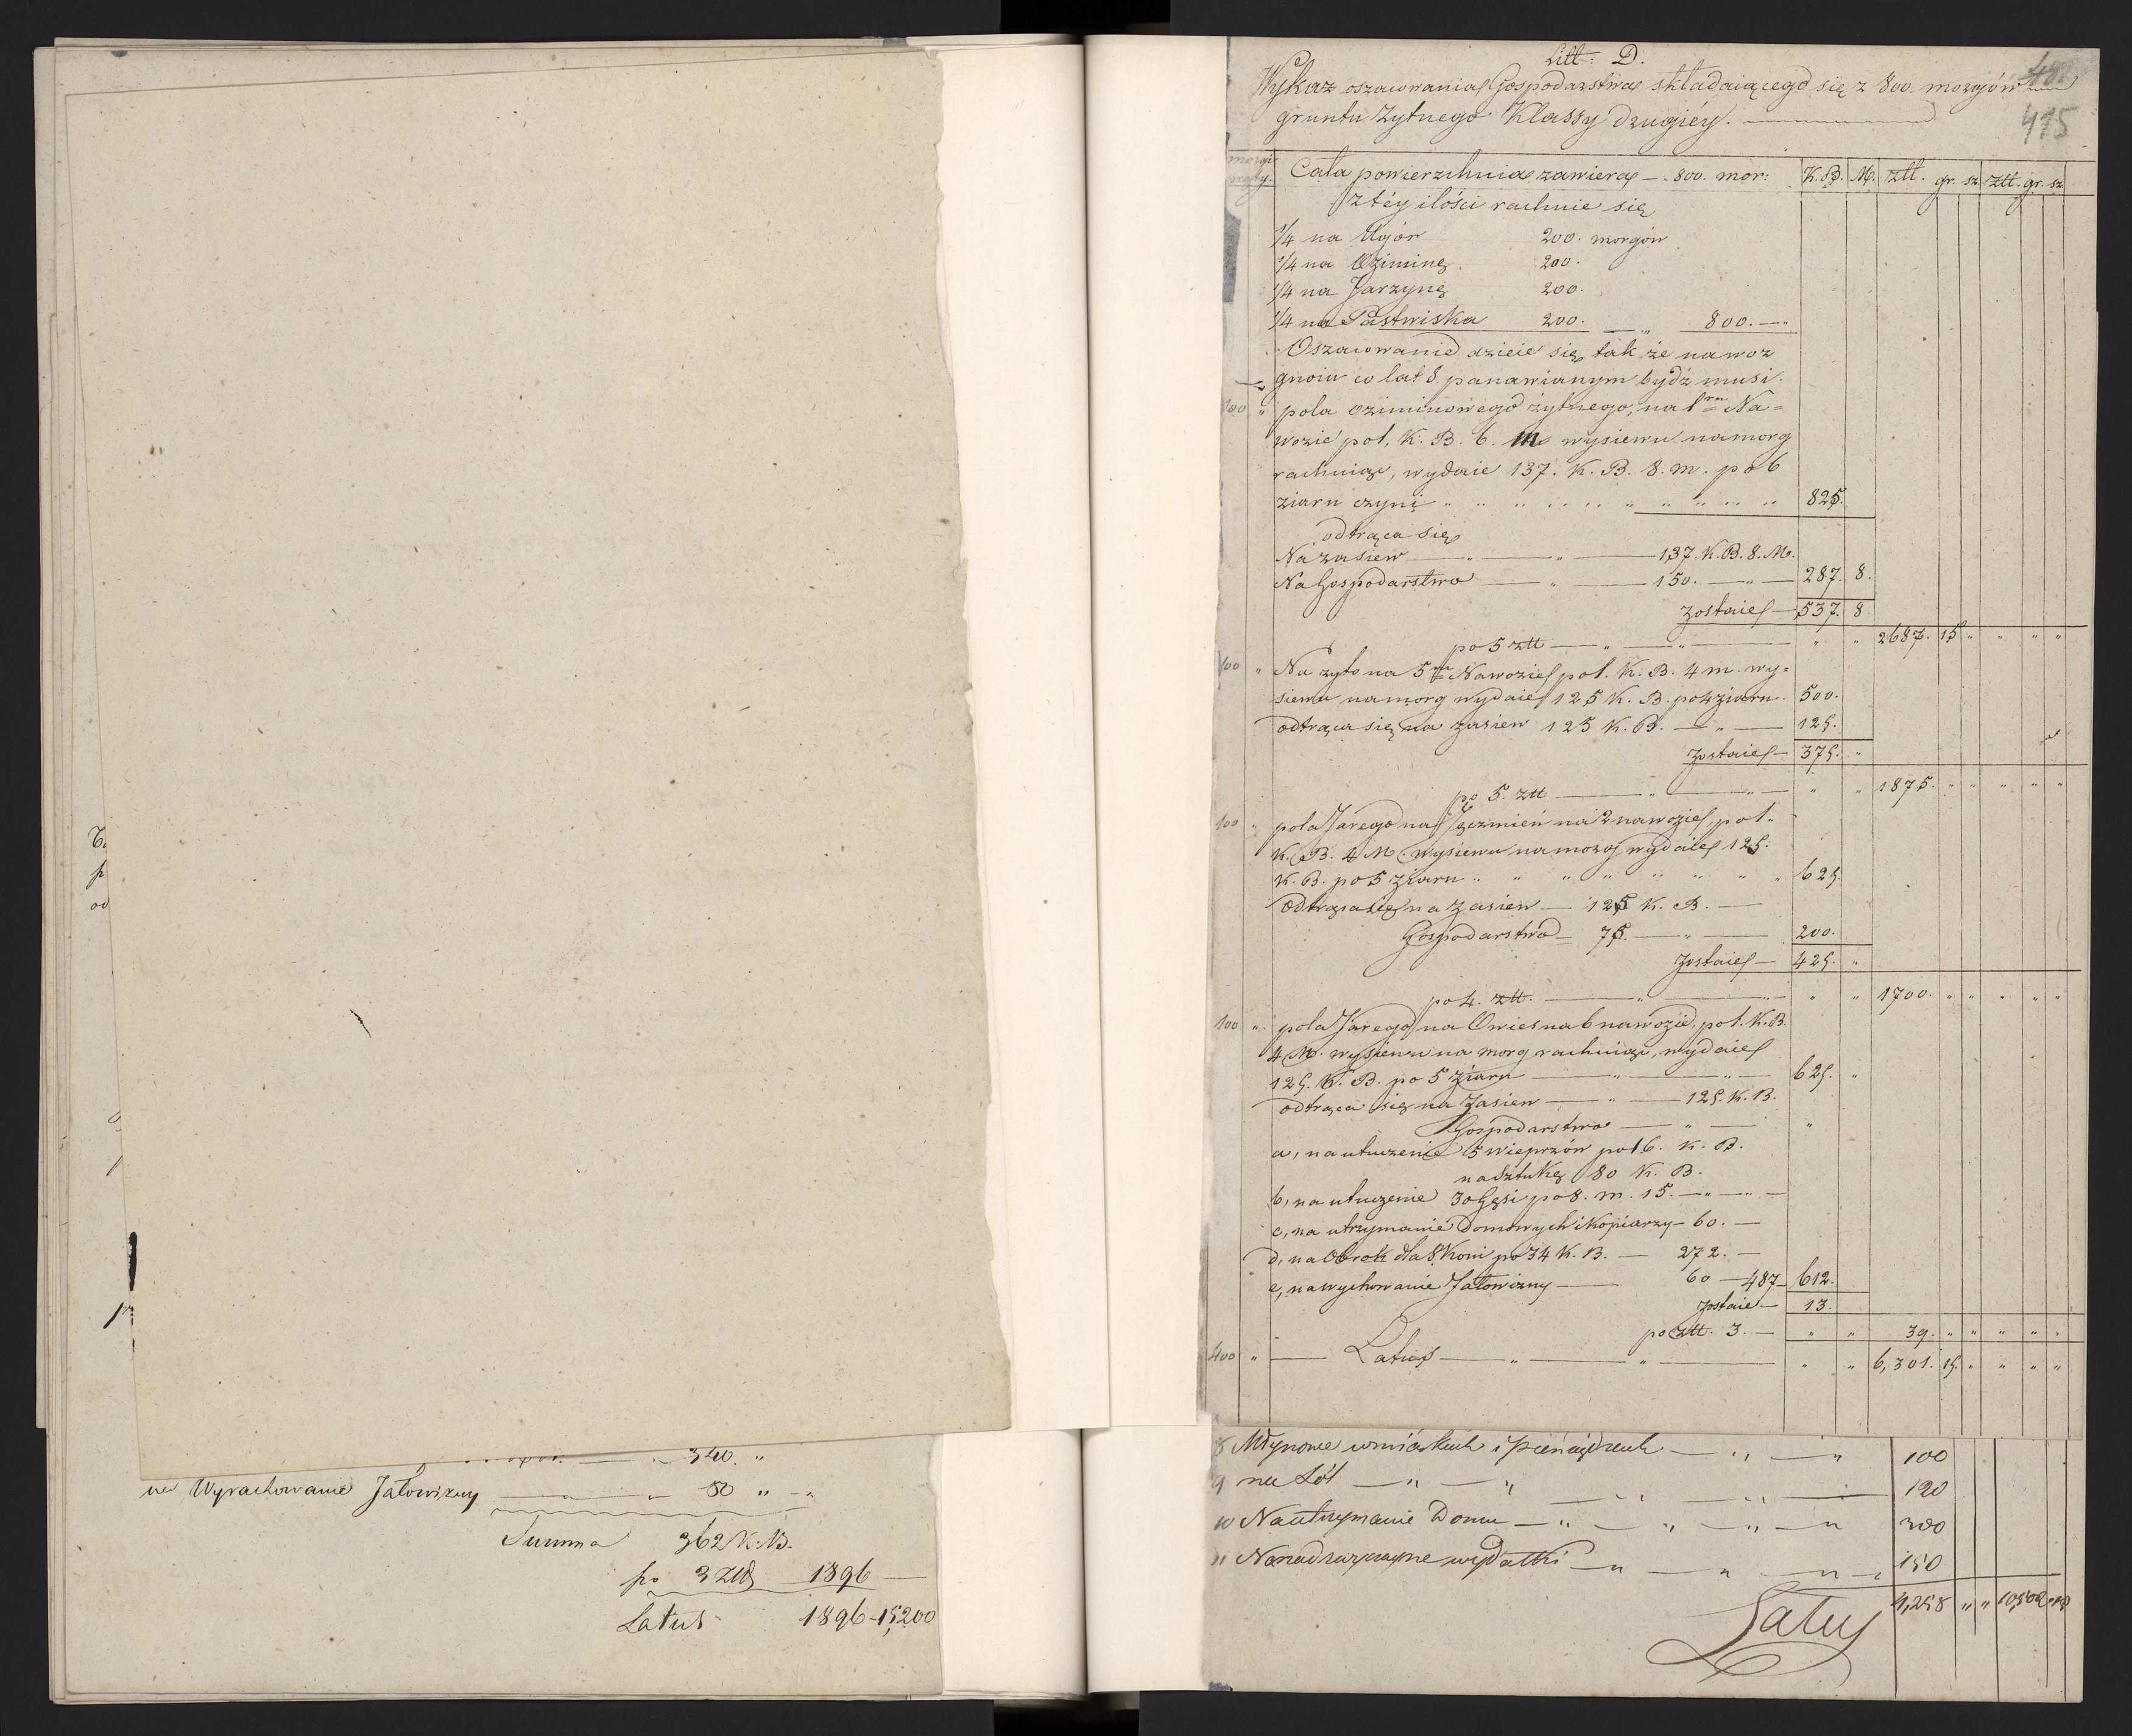 T.
p
od
340. "
na Wyrachowanie Jałowizny 50 " "
Summa 362 K. B.
po 3 Złł 1896
Latus 1896 - 15,200
Litt: D.
Wykaz oszacowania Gospodarstwa składaiącego się z 800. morgów
gruntu Zytnego Klassy drugiéy.
415
morgi Cała powierzchnia zawiera — 800. mor: K.B. M. złł. gr. sz. złł. gr. sz.
z téy ilości rachuie się
1/4 na Ugór 200. morgów
1/4 na Oziminę 200.
1/4 na Jarzynę 200.
1/4 na Pastwiska 200. — " 800. —
Oszacowanie dzieie się tak że nawoz
gnoiu co lat 8 panawianym bydź musi.
100 " pola oziminowego żytnego, na 1m Na=
wozie po 1. K. B. 6. m wysiewu na morg
rachuiąc, wydaie 137. K. B. 8. m. po 6
ziarn czyni " " " " 825.
odtrąca się
Na zasiew — " — 137. K. B. 8. M.
Na Gospodarstwo — " — 150. — " — 287. 8.
zostaie — 537. 8
po 5 złł — " — " — " " 2687. 15 " " " "
100 " Na zyto na 5m Nawozie po 1. K. B. 4 m. wy=
siewu na morg wydaie 125 K. B. po 4 ziarn. 500.
odtrąca się na zasiew 125 K. B. — " — 125.
zostaie — 375. "
po 5. złł — " — " — " " 1875. " " " " "
100 " pola Jarego na Jęczmień na 2 nawozie, po 1.
K. B. 4 M. wysiewu na morg wydaie 125.
K. B. po 5 ziarn " " " " " " " 625.
Odtrąca się na zasiew — 125 K. B. —
Gospodarstwo — 75. — " — 200.
zostaie — 425. "
po 4. złł. — " — " — " " 1700. " " " " "
100 " pola Jarego na Owies na 6 nawozie, po 1. K. B.
4 M. wysiewu na morg rachuiąc, wydaie
125. K. B. po 5 ziarn — " — " — 625. "
odtrąca się na zasiew — " — 125. K. B.
Gospodarstwo — " — "
a, na utuczenie 5 wieprzów po 16. K. B.
na sztukę 80 K. B.
b, na utuczenie 30 Gęsi po 8. m. 15. — " — " —
c, na utrzymanie Domowych i Kopiarzy — 60. —
d, na Obrok dla 8 Koni po 34 K. B. — 272. —
e, na wychowanie Jałowizny — 60 — 487 — 612.
zostaie — 13.
po złł. 3. — " " 39. " " " " "
400 " — Latus — " — " — " " 6,301. 15. " " " "
8 Młynowe w miarkach i pieniądzach — " — " 100
9 na Sól — " — " — " — " — 120
10 Na utrzymanie Domu — " — " — " — " 300
11 Na nadzwyczayne wydatki — " — " — " — 150
Latus 4,258 " "